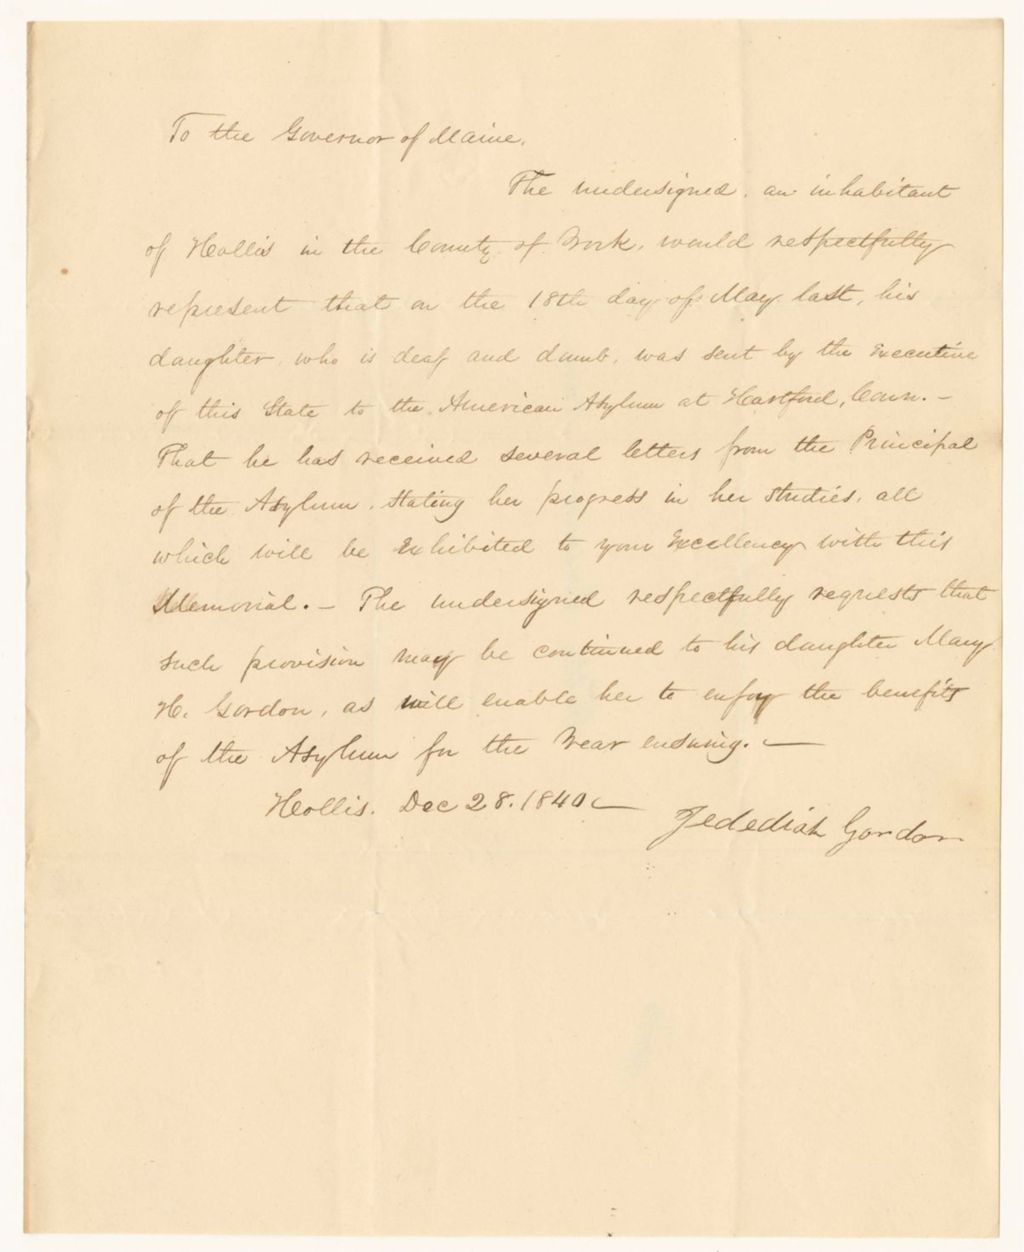 To the Governor of Maine.
The undersigned, an inhabitant
of Hollis in the County of York, would respectfully
represent that on the 18th day of May last, his
daughter who is deaf and dumb, was sent by the Executive
of this State to the American Asylum at Hartford, Conn. —
That he has received several letters from the Principal
of the Asylum, stating her progress in her studies, all
which will be Exhibited to your Excellency with this
Memorial. — The undersigned respectfully requests that
such provision may be continued to his daughter Mary
H. Gordon, as will enable her to enjoy the benefits
of the Asylum for the Year ensuing. —
Hollis. Dec 28. 1840 —
Jedediah Gordon